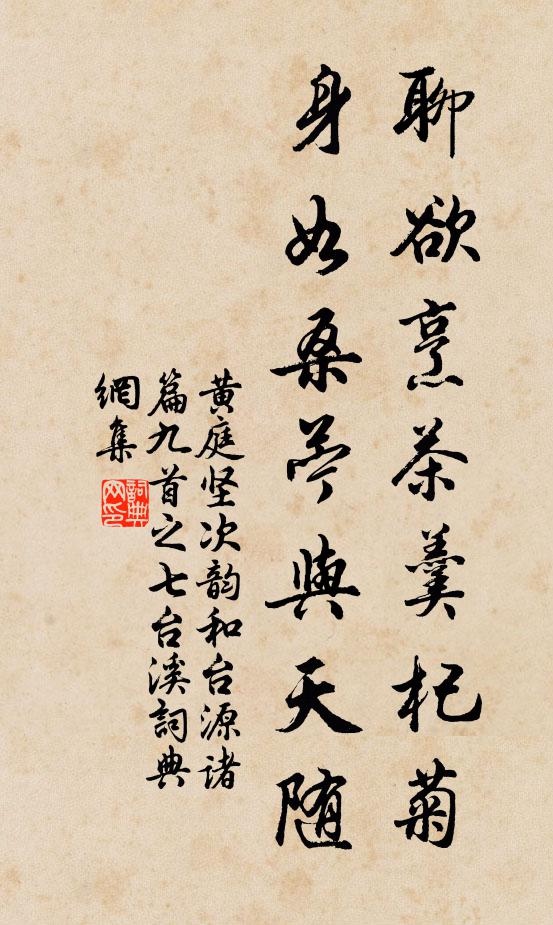 聊欲烹茶羹杞菊
身如桑苧與天随
黄庭坚次韵和台源诸
篇九首之七台溪詞典
網集
詞典
网印